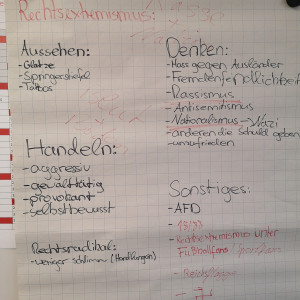 Rechtsextremismus:
Aussehen:
-Glatze
-Springerstiefel
-Tattoos
Denken:
-Hass gegen Ausländer
-Fremdenfeindlichkeit
-Rassismus
-Antisemitismus
-Nationalismus → Nazi
-anderen die Schuld geben
-unzufrieden
Handeln:
-aggressiv
-gewalttätig
-provokant
-selbstbewusst
Rechtsradikal:
-weniger schlimm (Handlungen)
Sonstiges:
-AFD
-18/88
-Rechtsextremismus unter
Fußballfans
-Reichsbürger